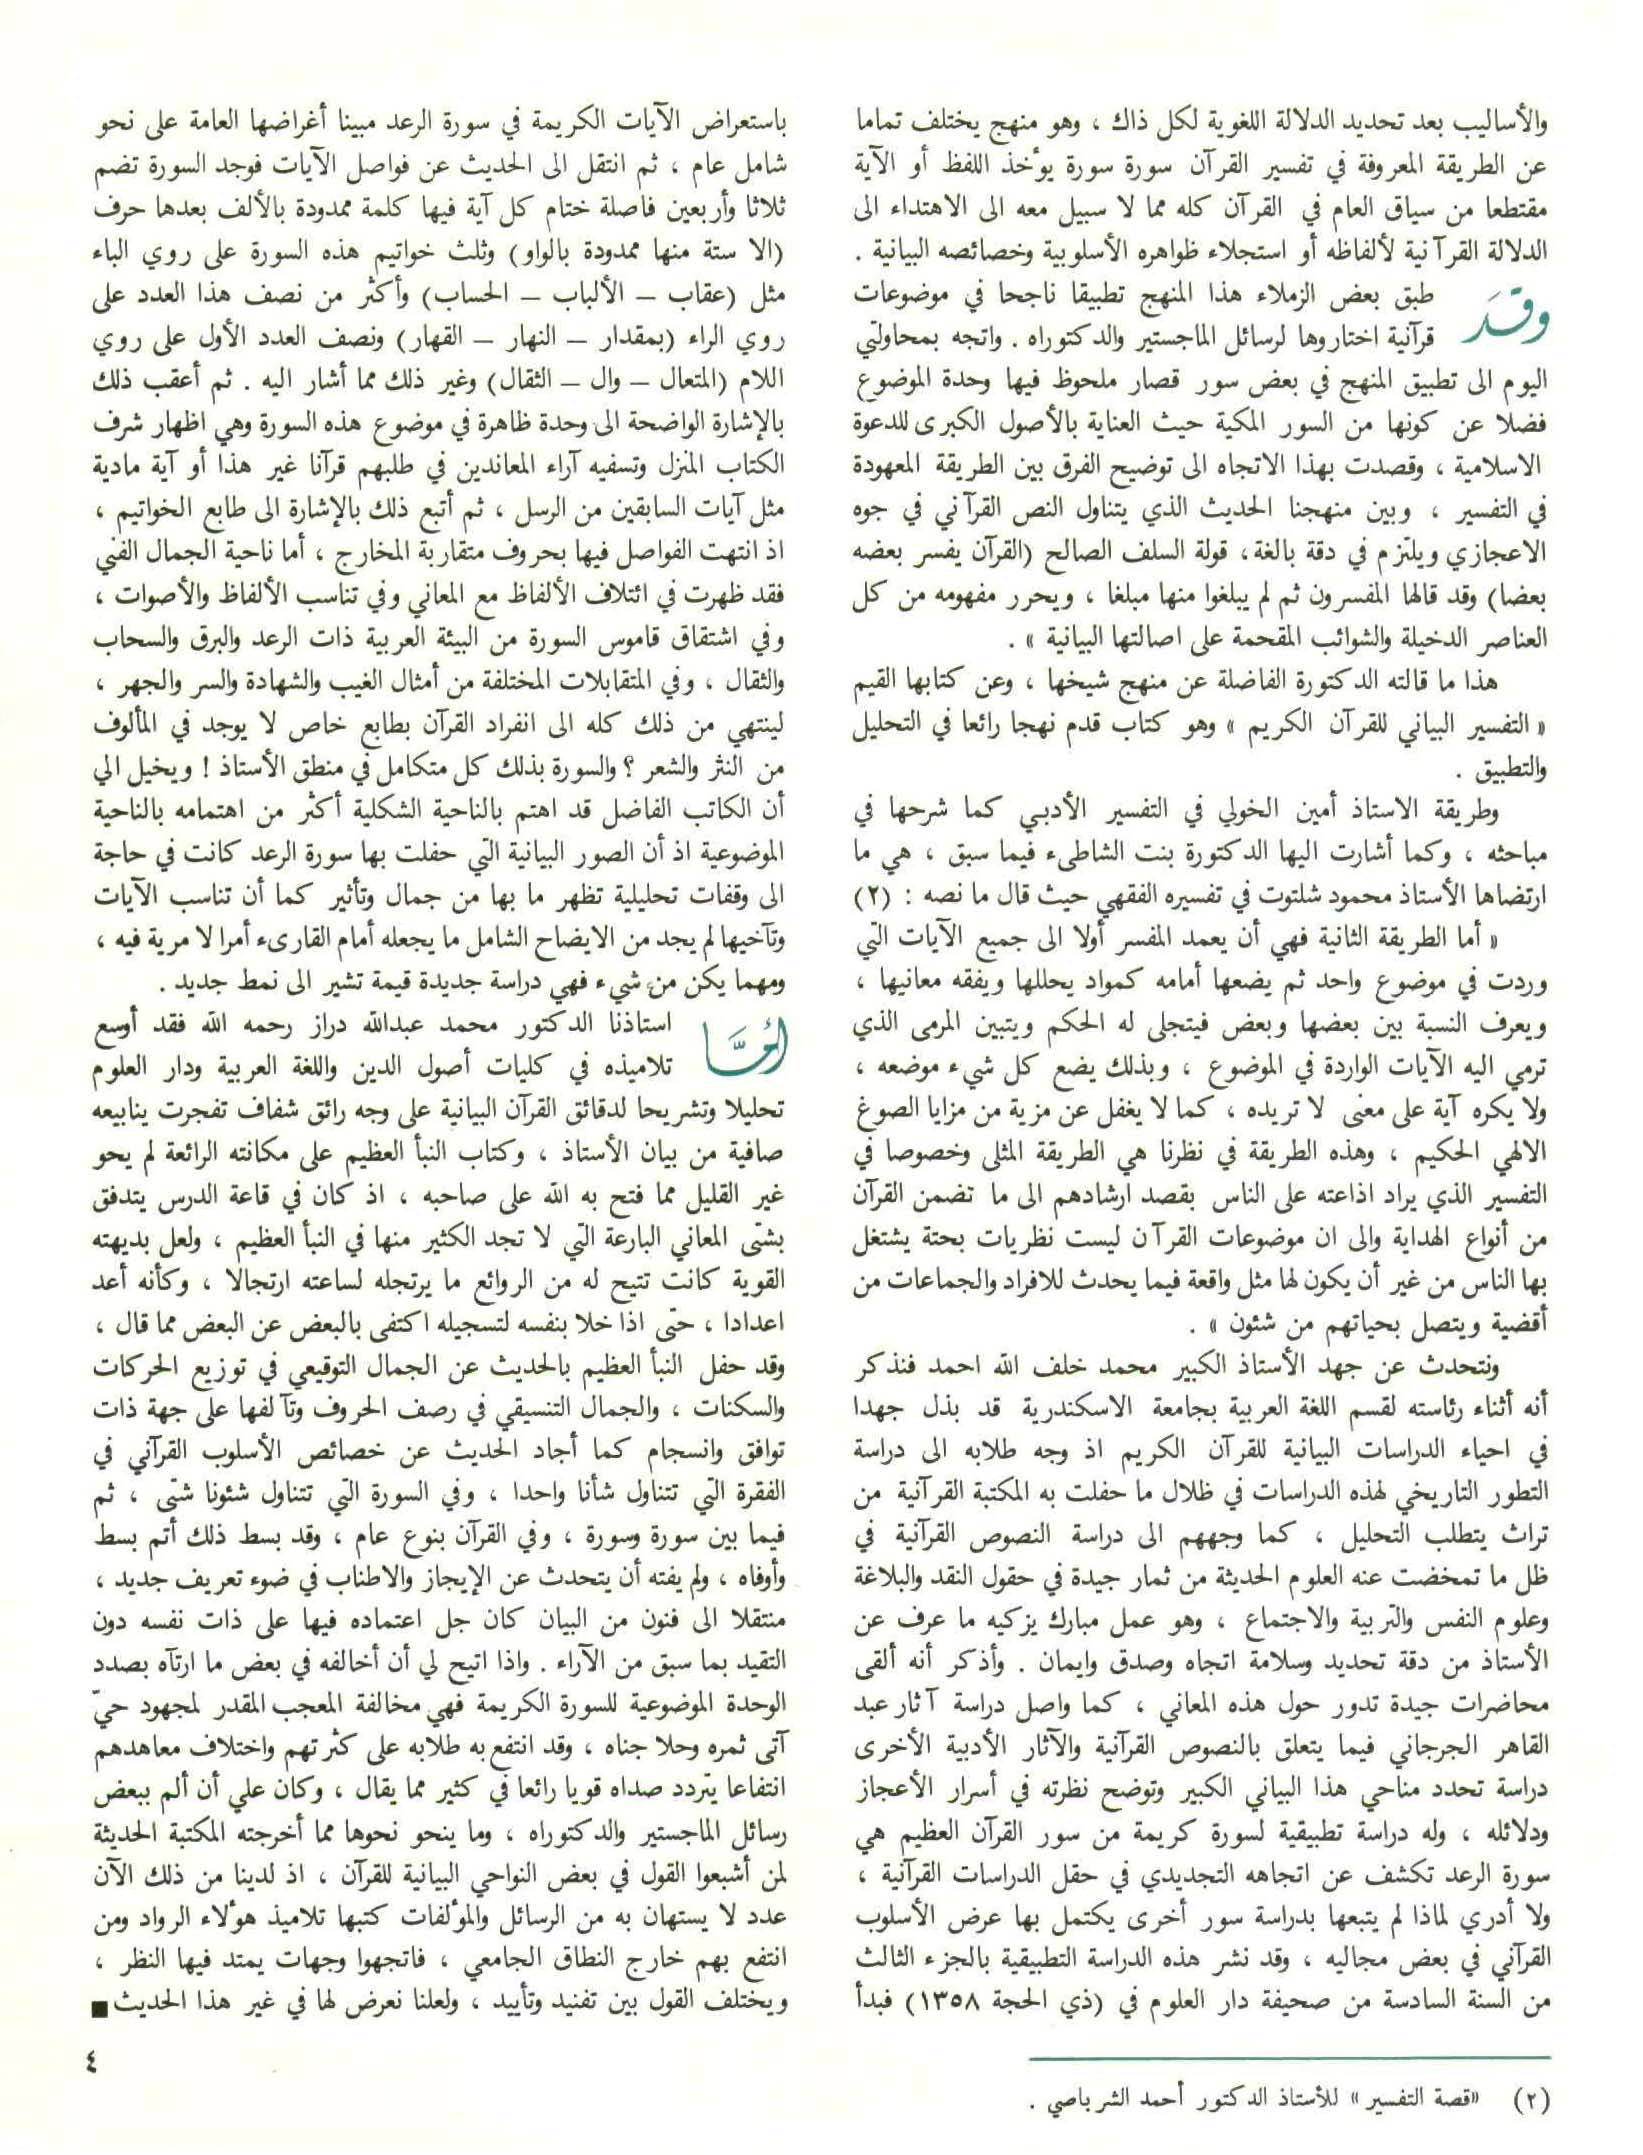 والأساليب بعد تحديد الدلالة اللغوية لكل ذاك ، وهو منهج يختلف تماما
عن الطريقة المعروفة في تفسير القرآن سورة سورة يؤخذ اللفظ أو الآية
مقتطعا من سياق العام في القرآن كله مما لا سبيل معه الى الاهتداء الى
الدلالة القرآنية لألفاظه أو استجلاء ظواهره الأسلوبية وخصائصه البيانية .
وقدَ طبق بعض الزملاء هذا المنهج تطبيقا ناجحا في موضوعات
قرآنية اختاروها لرسائل الماجستير والدكتوراه . واتجه بمحاولتي
اليوم الى تطبيق المنهج في بعض سور قصار ملحوظ فيها وحدة الموضوع
فضلا عن كونها من السور المكية حيث العناية بالأصول الكبرى للدعوة
الاسلامية ، وقصدت بهذا الاتجاه الى توضيح الفرق بين الطريقة المعهودة
في التفسير ، وبين منهجنا الحديث الذي يتناول النص القرآني في جوه
الاعجازي ويلتزم في دقة بالغة، قولة السلف الصالح (القرآن يفسر بعضه
بعضا) وقد قالها المفسرون ثم لم يبلغوا منها مبلغا ، ويحرر مفهومه من كل
العناصر الدخيلة والشوائب المقحمة على اصالتها البيانية » .
هذا ما قالته الدكتورة الفاضلة عن منهج شيخها ، وعن كتابها القيم
« التفسير البياني للقرآن الكريم » وهو كتاب قدم نهجا رائعا في التحليل
والتطبيق .
وطريقة الاستاذ أمين الخولي في التفسير الأدبي كما شرحها في
مباحثه ، وكما أشارت اليها الدكتورة بنت الشاطىء فيما سبق ، هي ما
ارتضاها الأستاذ محمود شلتوت في تفسيره الفقهي حيث قال ما نصه : (٢)
« أما الطريقة الثانية فهي أن يعمد المفسر أولا الى جميع الآيات التي
وردت في موضوع واحد ثم يضعها أمامه كمواد يحللها ويفقه معانيها ،
ويعرف النسبة بين بعضها وبعض فيتجلى له الحكم ويتبين المرمى الذي
ترمي اليه الآيات الواردة في الموضوع ، وبذلك يضع كل شيء موضعه ،
ولا يكره آية على معنى لا تريده ، كما لا يغفل عن مزية من مزايا الصوغ
الالهي الحكيم ، وهذه الطريقة في نظرنا هي الطريقة المثلى وخصوصا في
التفسير الذي يراد اذاعته على الناس بقصد ارشادهم الى ما تضمن القرآن
من أنواع الهداية والى ان موضوعات القرآن ليست نظريات بحتة يشتغل
بها الناس من غير أن يكون لها مثل واقعة فيما يحدث للافراد والجماعات من
أقضية ويتصل بحياتهم من شئون » .
ونتحدث عن جهد الأستاذ الكبير محمد خلف الله احمد فنذكر
أنه أثناء رئاسته لقسم اللغة العربية بجامعة الاسكندرية قد بذل جهدا
في احياء الدراسات البيانية للقرآن الكريم اذ وجه طلابه الى دراسة
التطور التاريخي لهذه الدراسات في ظلال ما حفلت به المكتبة القرآنية من
تراث يتطلب التحليل ، كما وجههم الى دراسة النصوص القرآنية في
ظل ما تمخضت عنه العلوم الحديثة من ثمار جيدة في حقول النقد والبلاغة
وعلوم النفس والتربية والاجتماع ، وهو عمل مبارك يزكيه ما عرف عن
الأستاذ من دقة تحديد وسلامة اتجاه وصدق وايمان . وأذكر أنه ألقى
محاضرات جيدة تدور حول هذه المعاني ، كما واصل دراسة آثار عبد
القاهر الجرجاني فيما يتعلق بالنصوص القرآنية والآثار الأدبية الأخرى
دراسة تحدد مناحي هذا البياني الكبير وتوضح نظرته في أسرار الأعجاز
ودلائله ، وله دراسة تطبيقية لسورة كريمة من سور القرآن العظيم هي
سورة الرعد تكشف عن اتجاهه التجديدي في حقل الدراسات القرآنية ،
ولا أدري لماذا لم يتبعها بدراسة سور أخرى يكتمل بها عرض الأسلوب
القرآني في بعض مجاليه ، وقد نشر هذه الدراسة التطبيقية بالجزء الثالث
من السنة السادسة من صحيفة دار العلوم في (ذي الحجة ١٣٥٨) فبدأ
باستعراض الآيات الكريمة في سورة الرعد مبينا أغراضها العامة على نحو
شامل عام ، ثم انتقل الى الحديث عن فواصل الآيات فوجد السورة تضم
ثلاثا وأربعين فاصلة ختام كل آية فيها كلمة ممدودة بالألف بعدها حرف
(الا ستة منها ممدودة بالواو) وثلث خواتيم هذه السورة على روي الباء
مثل (عقاب – الألباب – الحساب) وأكثر من نصف هذا العدد على
روي الراء (بمقدار – النهار – القهار) ونصف العدد الأول على روي
اللام (المتعال – وال – الثقال) وغير ذلك مما أشار اليه . ثم أعقب ذلك
بالإشارة الواضحة الى وحدة ظاهرة في موضوع هذه السورة وهي اظهار شرف
الكتاب المنزل وتسفيه آراء المعاندين في طلبهم قرآنا غير هذا أو آية مادية
مثل آيات السابقين من الرسل ، ثم أتبع ذلك بالإشارة الى طابع الخواتيم ،
اذ انتهت الفواصل فيها بحروف متقاربة المخارج ، أما ناحية الجمال الفني
فقد ظهرت في ائتلاف الألفاظ مع المعاني وفي تناسب الألفاظ والأصوات ،
وفي اشتقاق قاموس السورة من البيئة العربية ذات الرعد والبرق والسحاب
والثقال ، وفي المتقابلات المختلفة من أمثال الغيب والشهادة والسر والجهر ،
لينتهي من ذلك كله الى انفراد القرآن بطابع خاص لا يوجد في المألوف
من النثر والشعر ؟ والسورة بذلك كل متكامل في منطق الأستاذ ! ويخيل الي
أن الكاتب الفاضل قد اهتم بالناحية الشكلية أكثر من اهتمامه بالناحية
الموضوعية اذ أن الصور البيانية التي حفلت بها سورة الرعد كانت في حاجة
الى وقفات تحليلية تظهر ما بها من جمال وتأثير كما أن تناسب الآيات
وتآخيها لم يجد من الايضاح الشامل ما يجعله أمام القارىء أمرا لا مرية فيه ،
ومهما يكن من شيء فهي دراسة جديدة قيمة تشير الى نمط جديد .
أمَّا استاذنا الدكتور محمد عبدالله دراز رحمه الله فقد أوسع
تلاميذه في كليات أصول الدين واللغة العربية ودار العلوم
تحليلا وتشريحا لدقائق القرآن البيانية على وجه رائق شفاف تفجرت ينابيعه
صافية من بيان الأستاذ ، وكتاب النبأ العظيم على مكانته الرائعة لم يحو
غير القليل مما فتح به الله على صاحبه ، اذ كان في قاعة الدرس يتدفق
بشتى المعاني البارعة التي لا تجد الكثير منها في النبأ العظيم ، ولعل بديهته
القوية كانت تتيح له من الروائع ما يرتجله لساعته ارتجالا ، وكأنه أعد
اعدادا ، حتى اذا خلا بنفسه لتسجيله اكتفى بالبعض عن البعض مما قال ،
وقد حفل النبأ العظيم بالحديث عن الجمال التوقيعي في توزيع الحركات
والسكنات ، والجمال التنسيقي في رصف الحروف وتآلفها على جهة ذات
توافق وانسجام كما أجاد الحديث عن خصائص الأسلوب القرآني في
الفقرة التي تتناول شأنا واحدا ، وفي السورة التي تتناول شئونا شتى ، ثم
فيما بين سورة وسورة ، وفي القرآن بنوع عام ، وقد بسط ذلك أتم بسط
وأوفاه ، ولم يفته أن يتحدث عن الإيجاز والاطناب في ضوء تعريف جديد ،
منتقلا الى فنون من البيان كان جل اعتماده فيها على ذات نفسه دون
التقيد بما سبق من الآراء . واذا اتيح لي أن أخالفه في بعض ما ارتآه بصدد
الوحدة الموضوعية للسورة الكريمة فهي مخالفة المعجب المقدر لمجهود حيّ
آتى ثمره وحلا جناه ، وقد انتفع به طلابه على كثرتهم واختلاف معاهدهم
انتفاعا يتردد صداه قويا رائعا في كثير مما يقال ، وكان علي أن ألم ببعض
رسائل الماجستير والدكتوراه ، وما ينحو نحوها مما أخرجته المكتبة الحديثة
لمن أشبعوا القول في بعض النواحي البيانية للقرآن ، اذ لدينا من ذلك الآن
عدد لا يستهان به من الرسائل والمؤلفات كتبها تلاميذ هؤلاء الرواد ومن
انتفع بهم خارج النطاق الجامعي ، فاتجهوا وجهات يمتد فيها النظر ،
ويختلف القول بين تفنيد وتأييد ، ولعلنا نعرض لها في غير هذا الحديث ■
(٢) «قصة التفسير» للأستاذ الدكتور أحمد الشرباصي .
٤